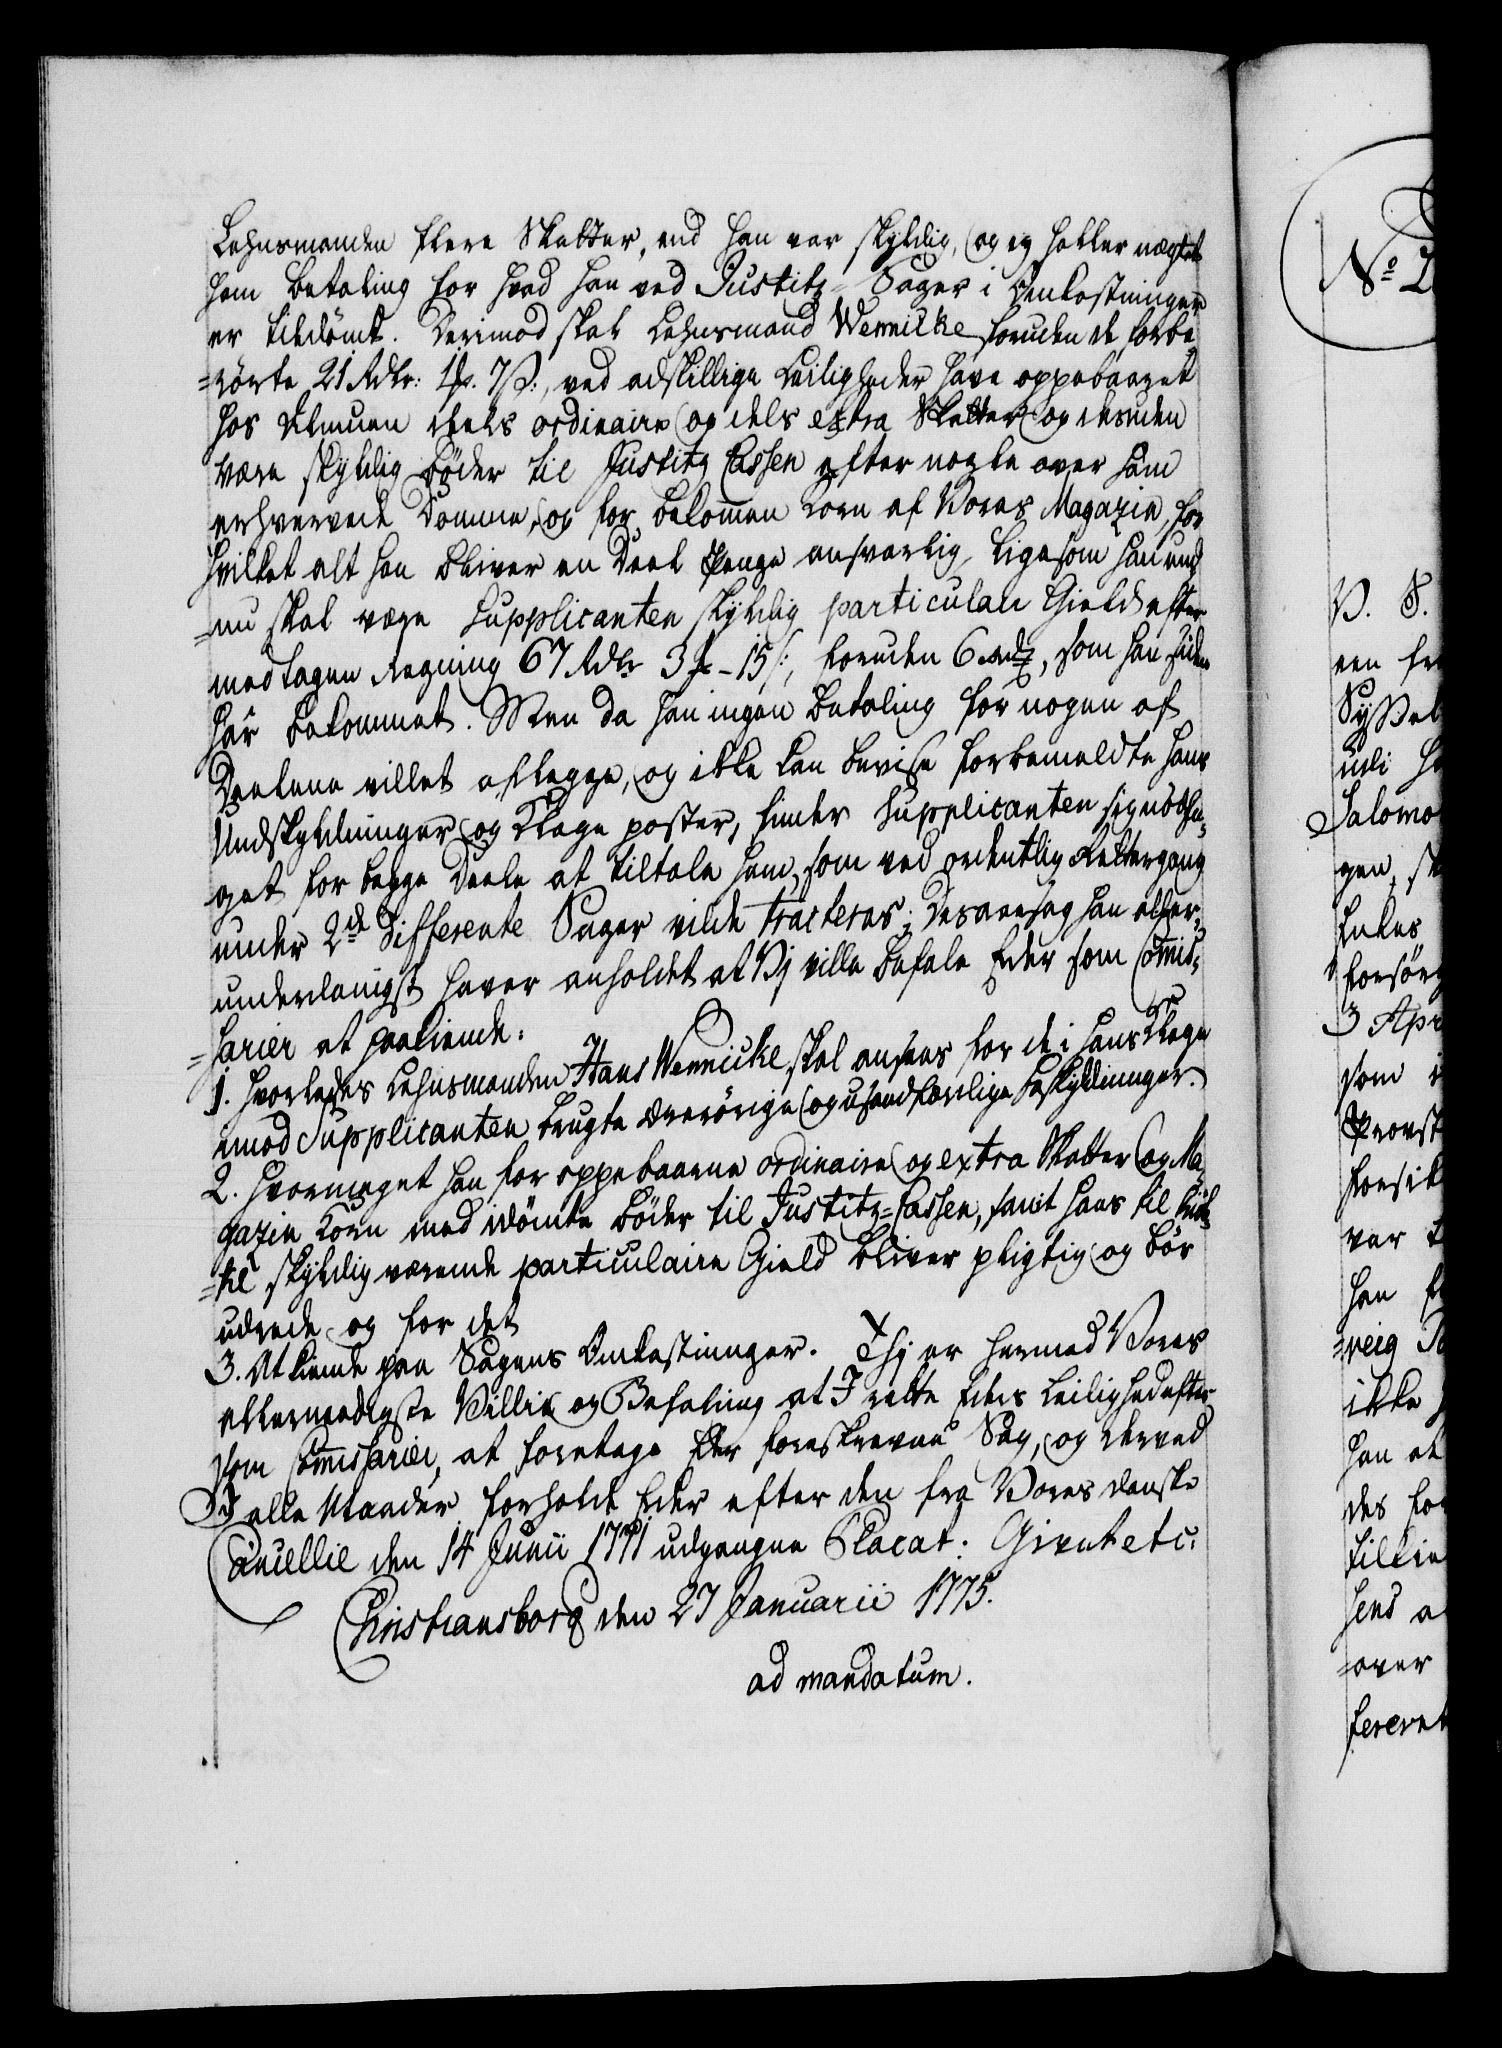 Lehnsmanden flere Skatter, end han var skyldig, og ey heller nægtet
ham Betaling for hvad han ved Justitz-Sager i Omkostninger
er tildømt. Derimod skal Lehnsmand Wernicke foruden de forbe-
=rørte 21 Rdlr: 1 ß: 7 ß:, ved adskillige Leiligheder have oppebaaret
hos Almuen deels ordinaire og dels extra Skatter og desuden
være skyldig Bøder til Justitz Cassen efter nogle over ham
erhvervede Domme, og for bekommen Korn af Vores Magazin, for
hvilket alt han bliver en Deel Penge ansvarlig, ligesom han end
=nu skal være Supplicanten skyldig particulair Gield efter
modtagen Regning 67 Rdlr 3 ß - 15 ß:, foruden 6 Rdr, som han siden
har bekommet. Men da han ingen Betaling for nogen af
Deelene villet aflegge, og ikke kan bevise forbemeldte hans
Undskyldninger og Klage poster, finder Supplicanten sig nødsa-
get for begge Deele at tiltale ham, som ved ordentlig Rettergang
under 2de differente Sager vilde tracteres; Desaarsag han aller-
underdanigst haver anholdet at Vj ville befale Eder som Comis-
=sarier at paakiende:
1. Hvorledes Lehnsmanden Hans Wernicke skal ansees for de i hans Klage
imod Supplicanten brugte ærerørige og usandfærdige Beskyldninger.
2. Hvormeget han for oppebaarne ordinaire og extra Skatter og Ma-
gazin Korn med idømte Bøder til Justitz-Cassen, samt hans til Sup-
=til skyldig værende particulaire Gield bliver pligtig og bør
udrede og for det
3. At kiende paa Sagens Omkostninger. Thj er hermed Vores
allernaadigste Villie og Befaling at I rette Eders Leilighed efter
som Commissarier, at foretage Eder foreskrevne Sag, og derved
I alle Maader forholde Eder efter den fra Vores danske
Cancellie den 14 Junii 1771 udgangne Placat. Givet etc:
Christiansborg den 27 Januarii 1775.
ad mandatum.
No 2
V. S.
Sÿssel
Salomo
gen, sk
3 Apr
som i
Provst
var t
han f
ikke
han at
des for
=over